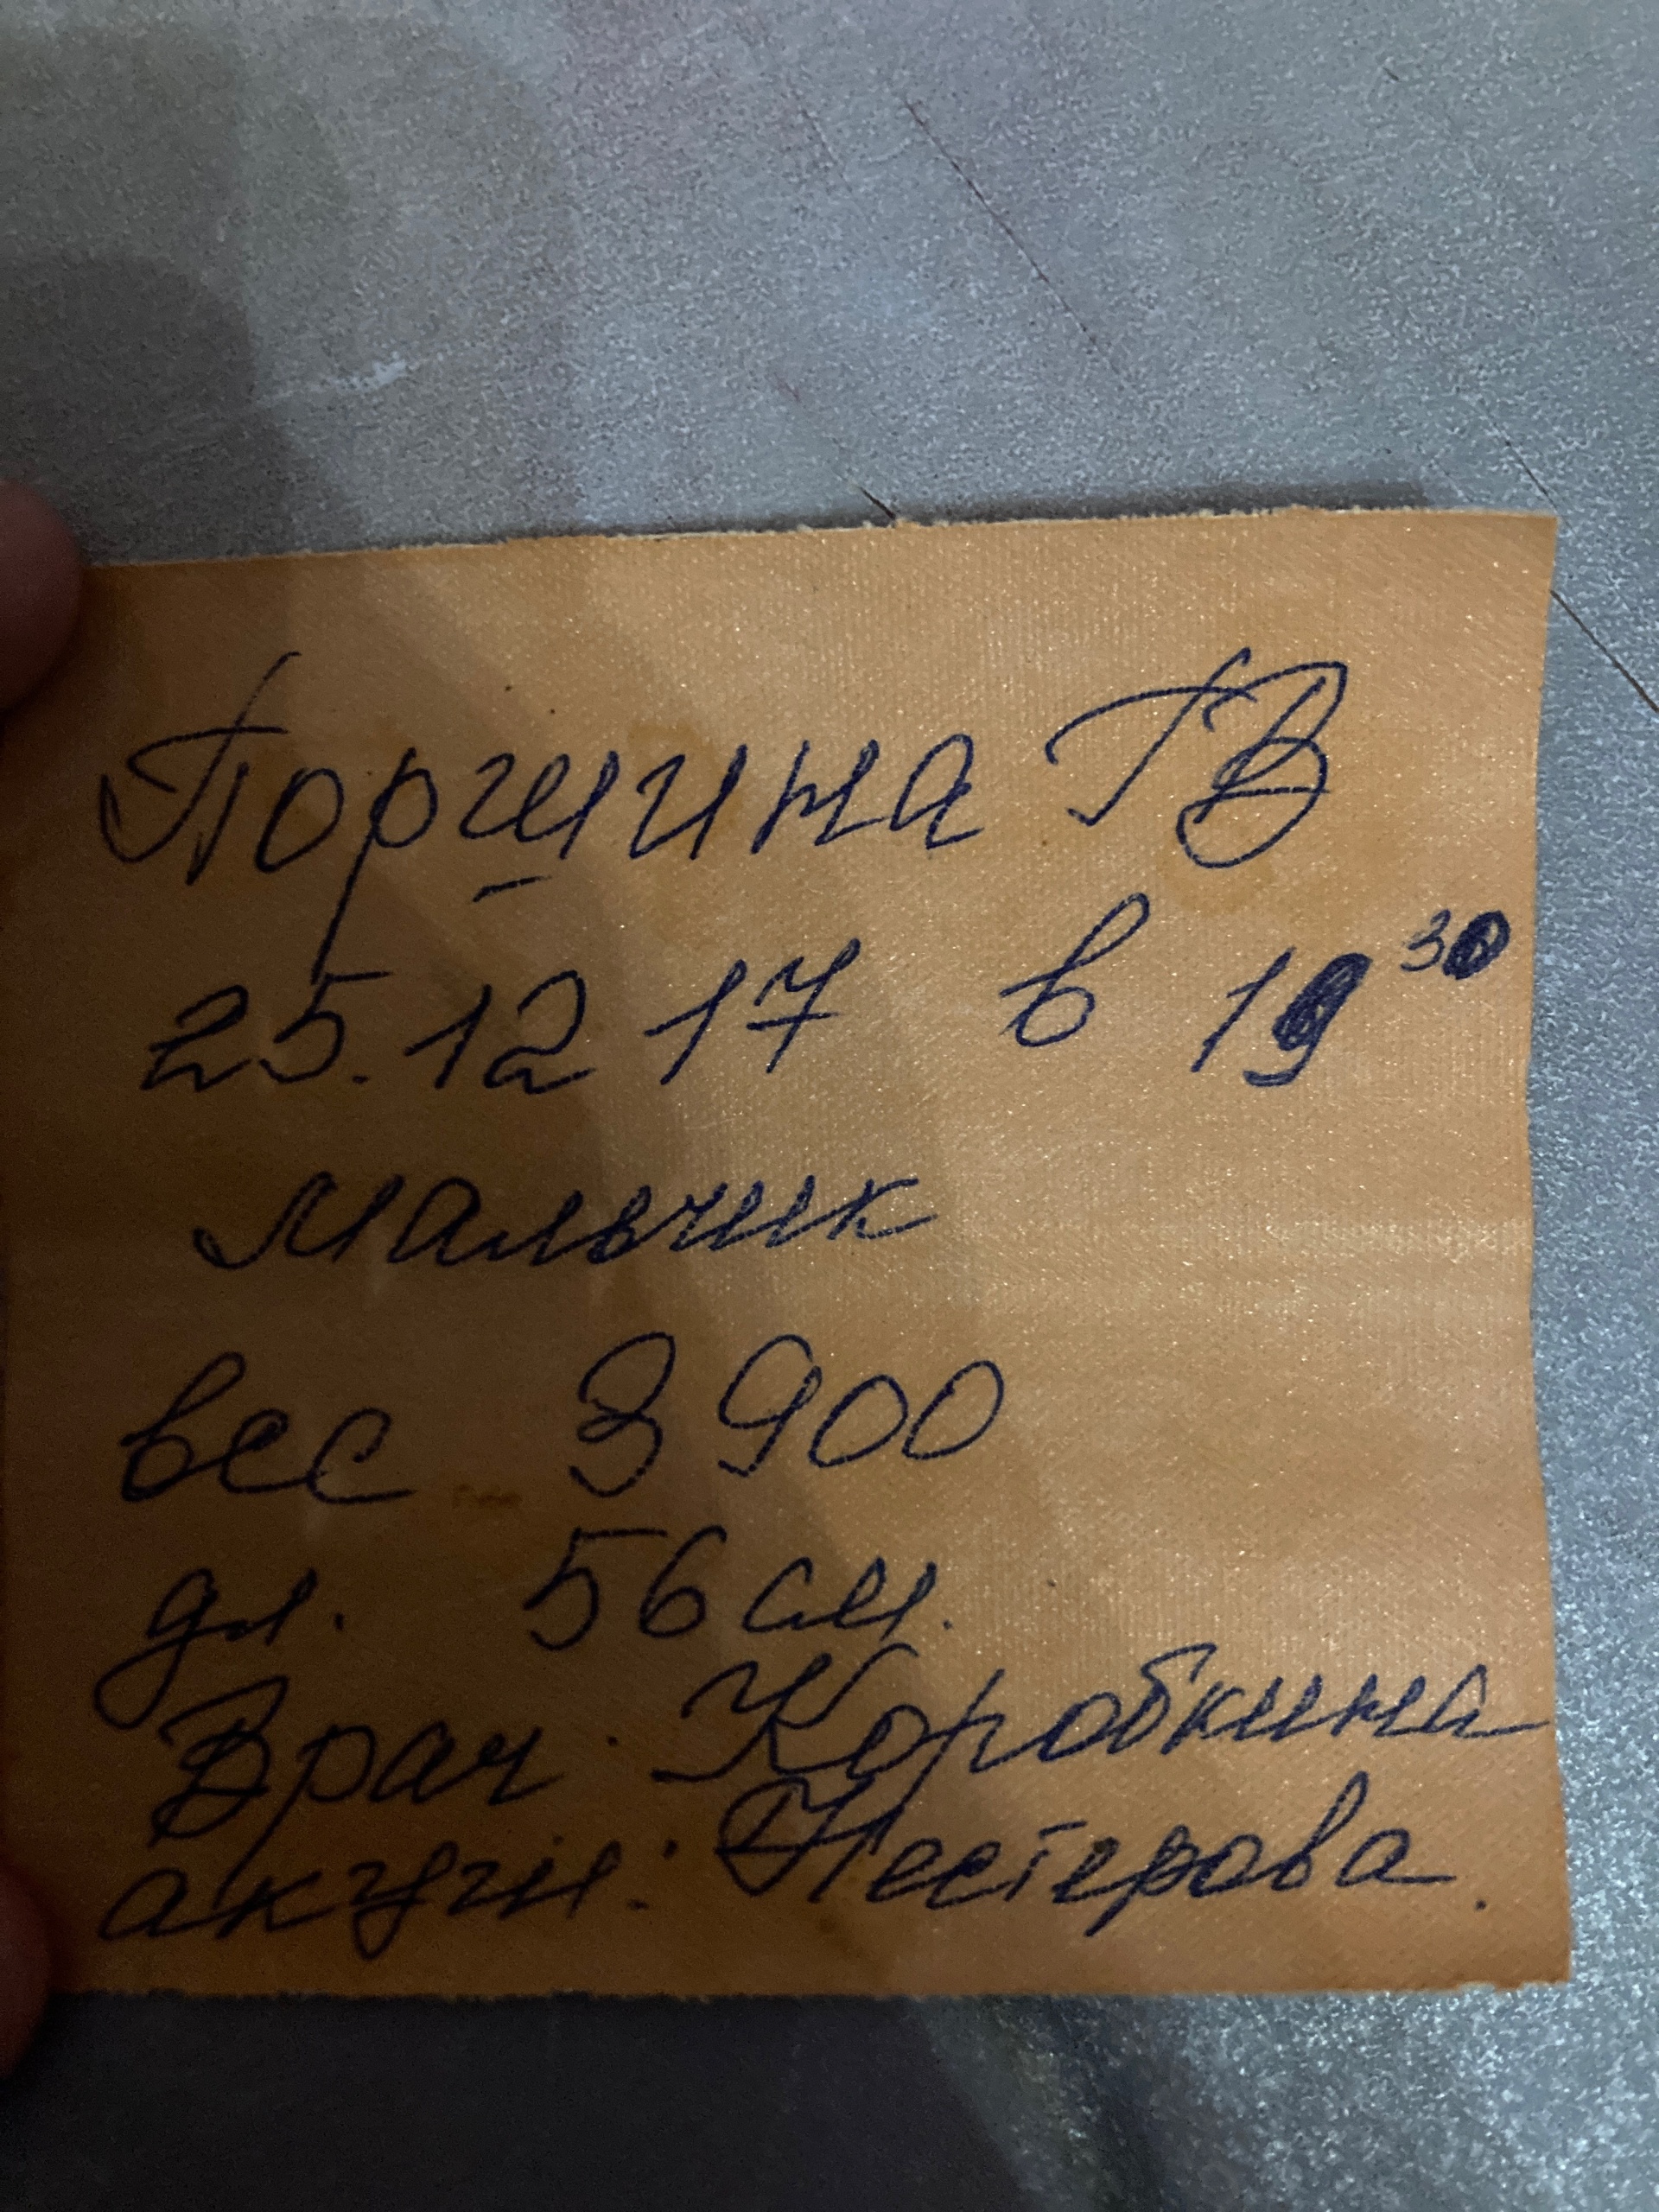 Поршина ГВ
25.12 17 в 19³⁰
мальчик
вес 3900
дл. 56 см.
Врач: Коробкина
акуш.: Нестерова.